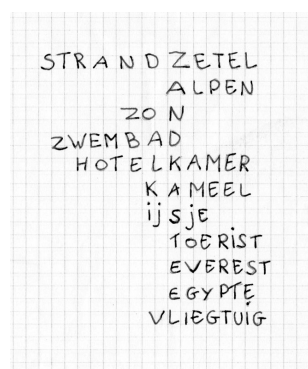 STRANDZETEL
ALPEN
ZON
ZWEMBAD
HOTELKAMER
KAMEEL
ijsjE
TOERIST
EVEREST
EGYPTE
VLIEGTUIG